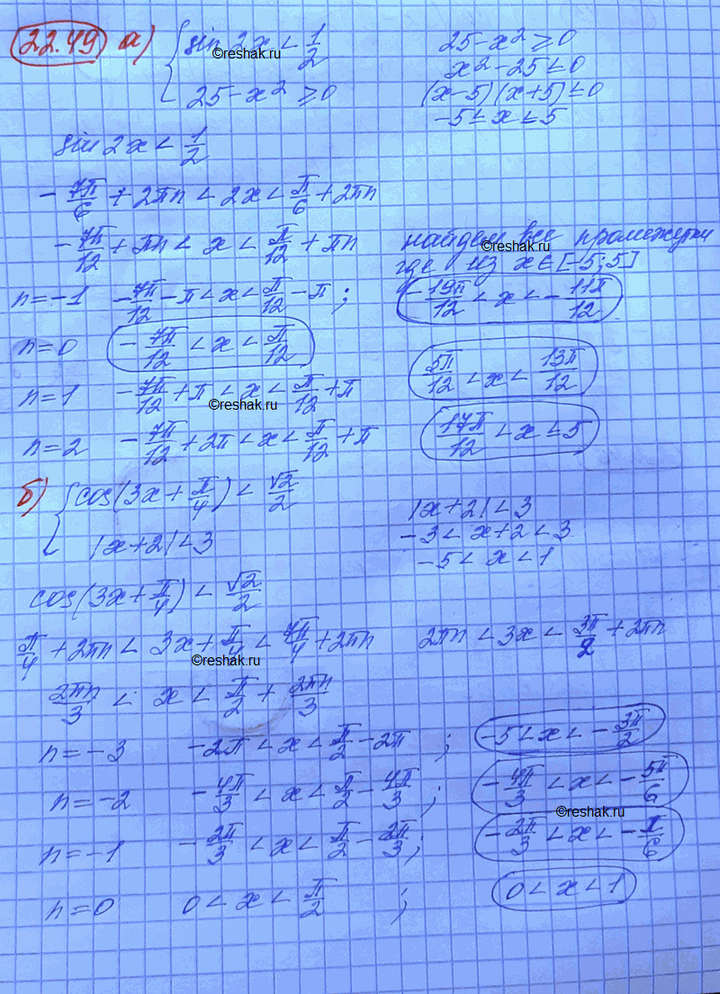 22.49 а) { sin 2x < 1/2   25-x² ≥ 0
©reshak.ru
25-x² ≥ 0   x²-25 ≤ 0
(x-5)(x+5) ≤ 0
-5 ≤ x ≤ 5
sin 2x < 1/2
-7π/6 + 2πn < 2x < π/6 + 2πn
-7π/12 + πn < x < π/12 + πn   найдем все промежутки
©reshak.ru
где из x ∈ [-5; 5]
n = -1   -7π/12 - π < x < π/12 - π ;   -19π/12 < x < -11π/12
n = 0   -7π/12 < x < π/12
n = 1   -7π/12 + π < x < π/12 + π   5π/12 < x < 13π/12
©reshak.ru
n = 2   -7π/12 + 2π < x < π/12 + π   17π/12 < x ≤ 5
б) { cos(3x + π/4) < √2/2   |x+2| < 3
|x+2| < 3   -3 < x+2 < 3
-5 < x < 1
cos(3x + π/4) < √2/2
π/4 + 2πn < 3x + π/4 < 7π/4 + 2πn   2πn < 3x < 3π/2 + 2πn
©reshak.ru
2πn/3 < x < π/2 + 2πn/3
n = -3   -2π < x < π/2 - 2π ;   -5 < x < -3π/2
n = -2   -4π/3 < x < π/2 - 4π/3 ;   -4π/3 < x < -5π/6
©reshak.ru
n = -1   -2π/3 < x < π/2 - 2π/3 ;   -2π/3 < x < -π/6
n = 0   0 < x < π/2 ;   0 < x < 1